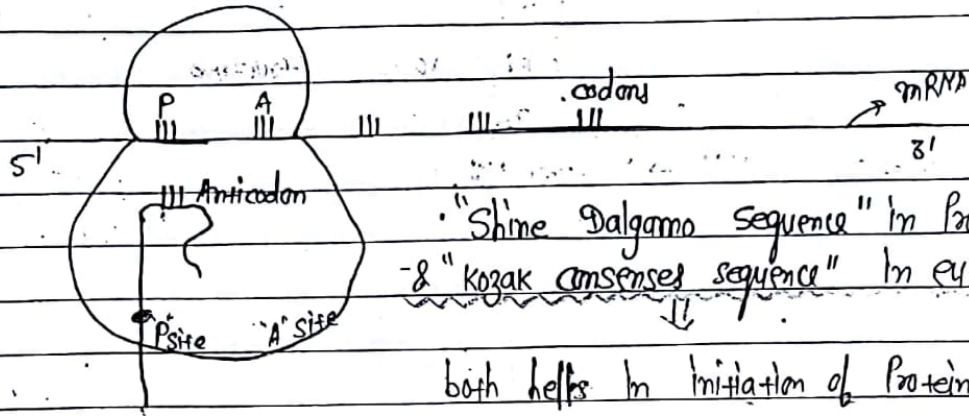 P A codons mRNA
5' 3'
Anticodon
."Shine Dalgamo Sequence" in Pr
-& "Kozak consenses sequence" In eu
"P" site "A" Site
both helps In initiation of Protein